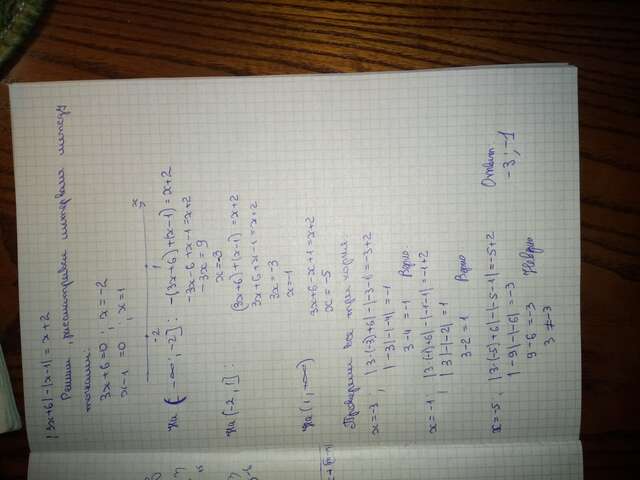 |3x+6|-|x-1|=x+2
Решим, рассматривая интервалы между
точками:
3x+6=0; x=-2
x-1=0; x=1
-2 1 x
На (-∞; -2]: -(3x+6)+(x-1)=x+2
-3x-6+x-1=x+2
-3x=9
x=-3
На (-2, 1]: (3x+6)+(x-1)=x+2
3x+6+x-1=x+2
3x=-3
x=-1
На (1, +∞) 3x+6-x+1=x+2
x=-5
Проверим все три корня:
x=-3, |3·(-3)+6|-|-3-1|=-3+2
|-3|-|-4|=-1
3-4=-1 Верно
x=-1, |3·(-1)+6|-|-1-1|=-1+2
|3|-|-2|=1
3-2=1 Верно
x=-5, |3·(-5)+6|-|-5-1|=-5+2
|-9|-|-6|=-3
9-6=-3 Неверно
3≠-3
Ответ
-3; -1